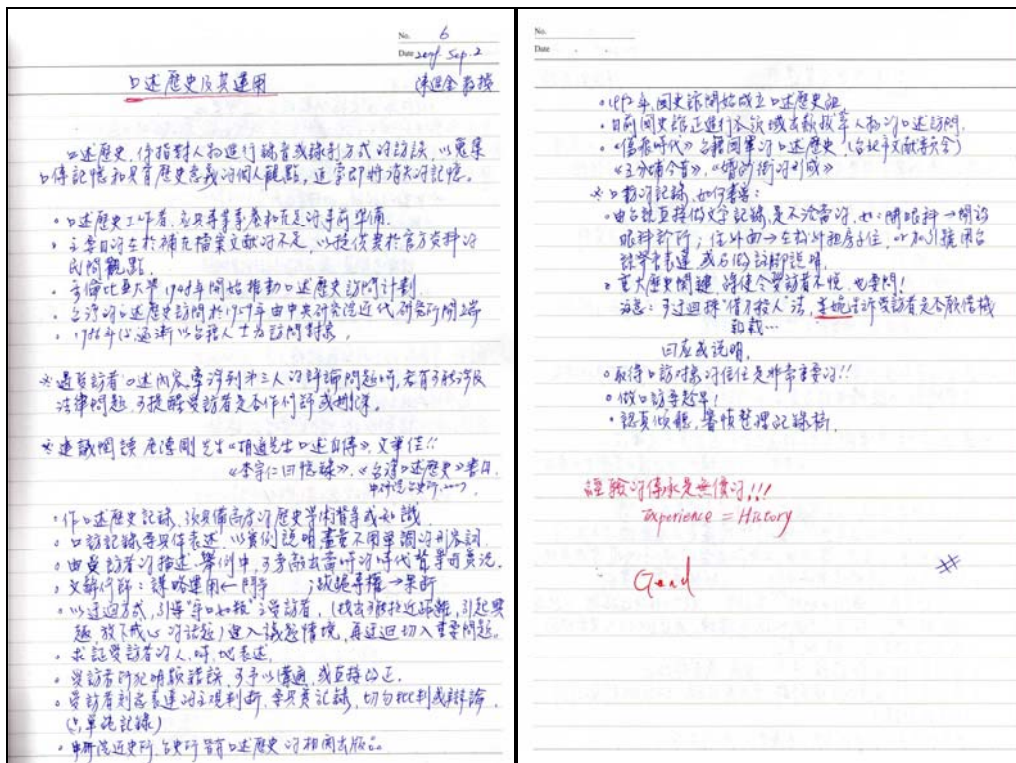 No. 6
Date 2009. Sep. 2
口述歷史及其運用
教授
口述歷史,係指對人物進行錄音或錄影方式的訪談,以蒐集
口傳記憶和具有歷史意義的個人觀點,
。口述歷史工作者,應具專業素養和充足的事前準備.
。主要目的在於補充檔案文獻的不足,以提供異於官方資料的
民間觀點.
。哥倫比亞大學1948年開始推動口述歷史訪問計劃.
。台灣的口述歷史訪問於1959年由中央研究院近代研究所開端
。1984年代逐漸以台籍人士為訪問對象.
※遇受訪者口述內容,牽涉到第三人的評論問題時,若有可能涉及
法律問題,可提醒受訪者是否作修飾或刪除.
※建議閱讀唐德剛先生《胡適先生口述自傳》,文筆佳!!
《李宗仁回憶錄》.《台灣口述歷史》書目.
中研院台史所.
。作口述歷史記錄,須具備高度的歷史學術背景或知識.
。口訪記錄要具體表述,以實例說明盡量不用單調的形容詞.
。由受訪者的描述、舉例中,可旁敲出當時的時代背景與實況.
。文辭修飾:謀略運用←鬥爭 ;跋扈專權→果斷
。以迂迴方式,引導"守口如瓶"之受訪者,(找出可能拉近距離,引起興
趣,放下戒心的話題)進入議題情境,再迂迴切入重要問題。
。求証受訪者的人、時、地表述.
。受訪者所犯明顯錯誤,可予以溝通,或直接修正.
。受訪者刻意表達的主觀判斷,要具實記錄,切勿批判或辯論.
記錄)
。中研院近史所、台史所皆有口述歷史的相關出版品。
No.
Date
年,國史館開始成立口述歷史組.
。目前國史館正進行各領域人物的口述訪問.
台籍國軍的口述歷史
今昔》,《婚紗街的形成》
※口敘的記錄,如何書寫:
。由台語直接做文字記錄,是不洽當的,如:開眼科→開設
眼科診所;住外面→在外租房子住,或加引號用台
語發音表達,或另做註腳說明.
。重大歷史關鍵,縱使令受訪者不悅,也要問!
注意:可迂迴採"借刀殺人"法,委婉告訴受訪者是否願借機
回應或說明.
。取得口訪對象的信任是非常重要的!!
。做口訪要趁早!
。認真傾聽,審慎整理記錄稿.
經驗的傳承是無價的!!!
Experience = History
Good
#